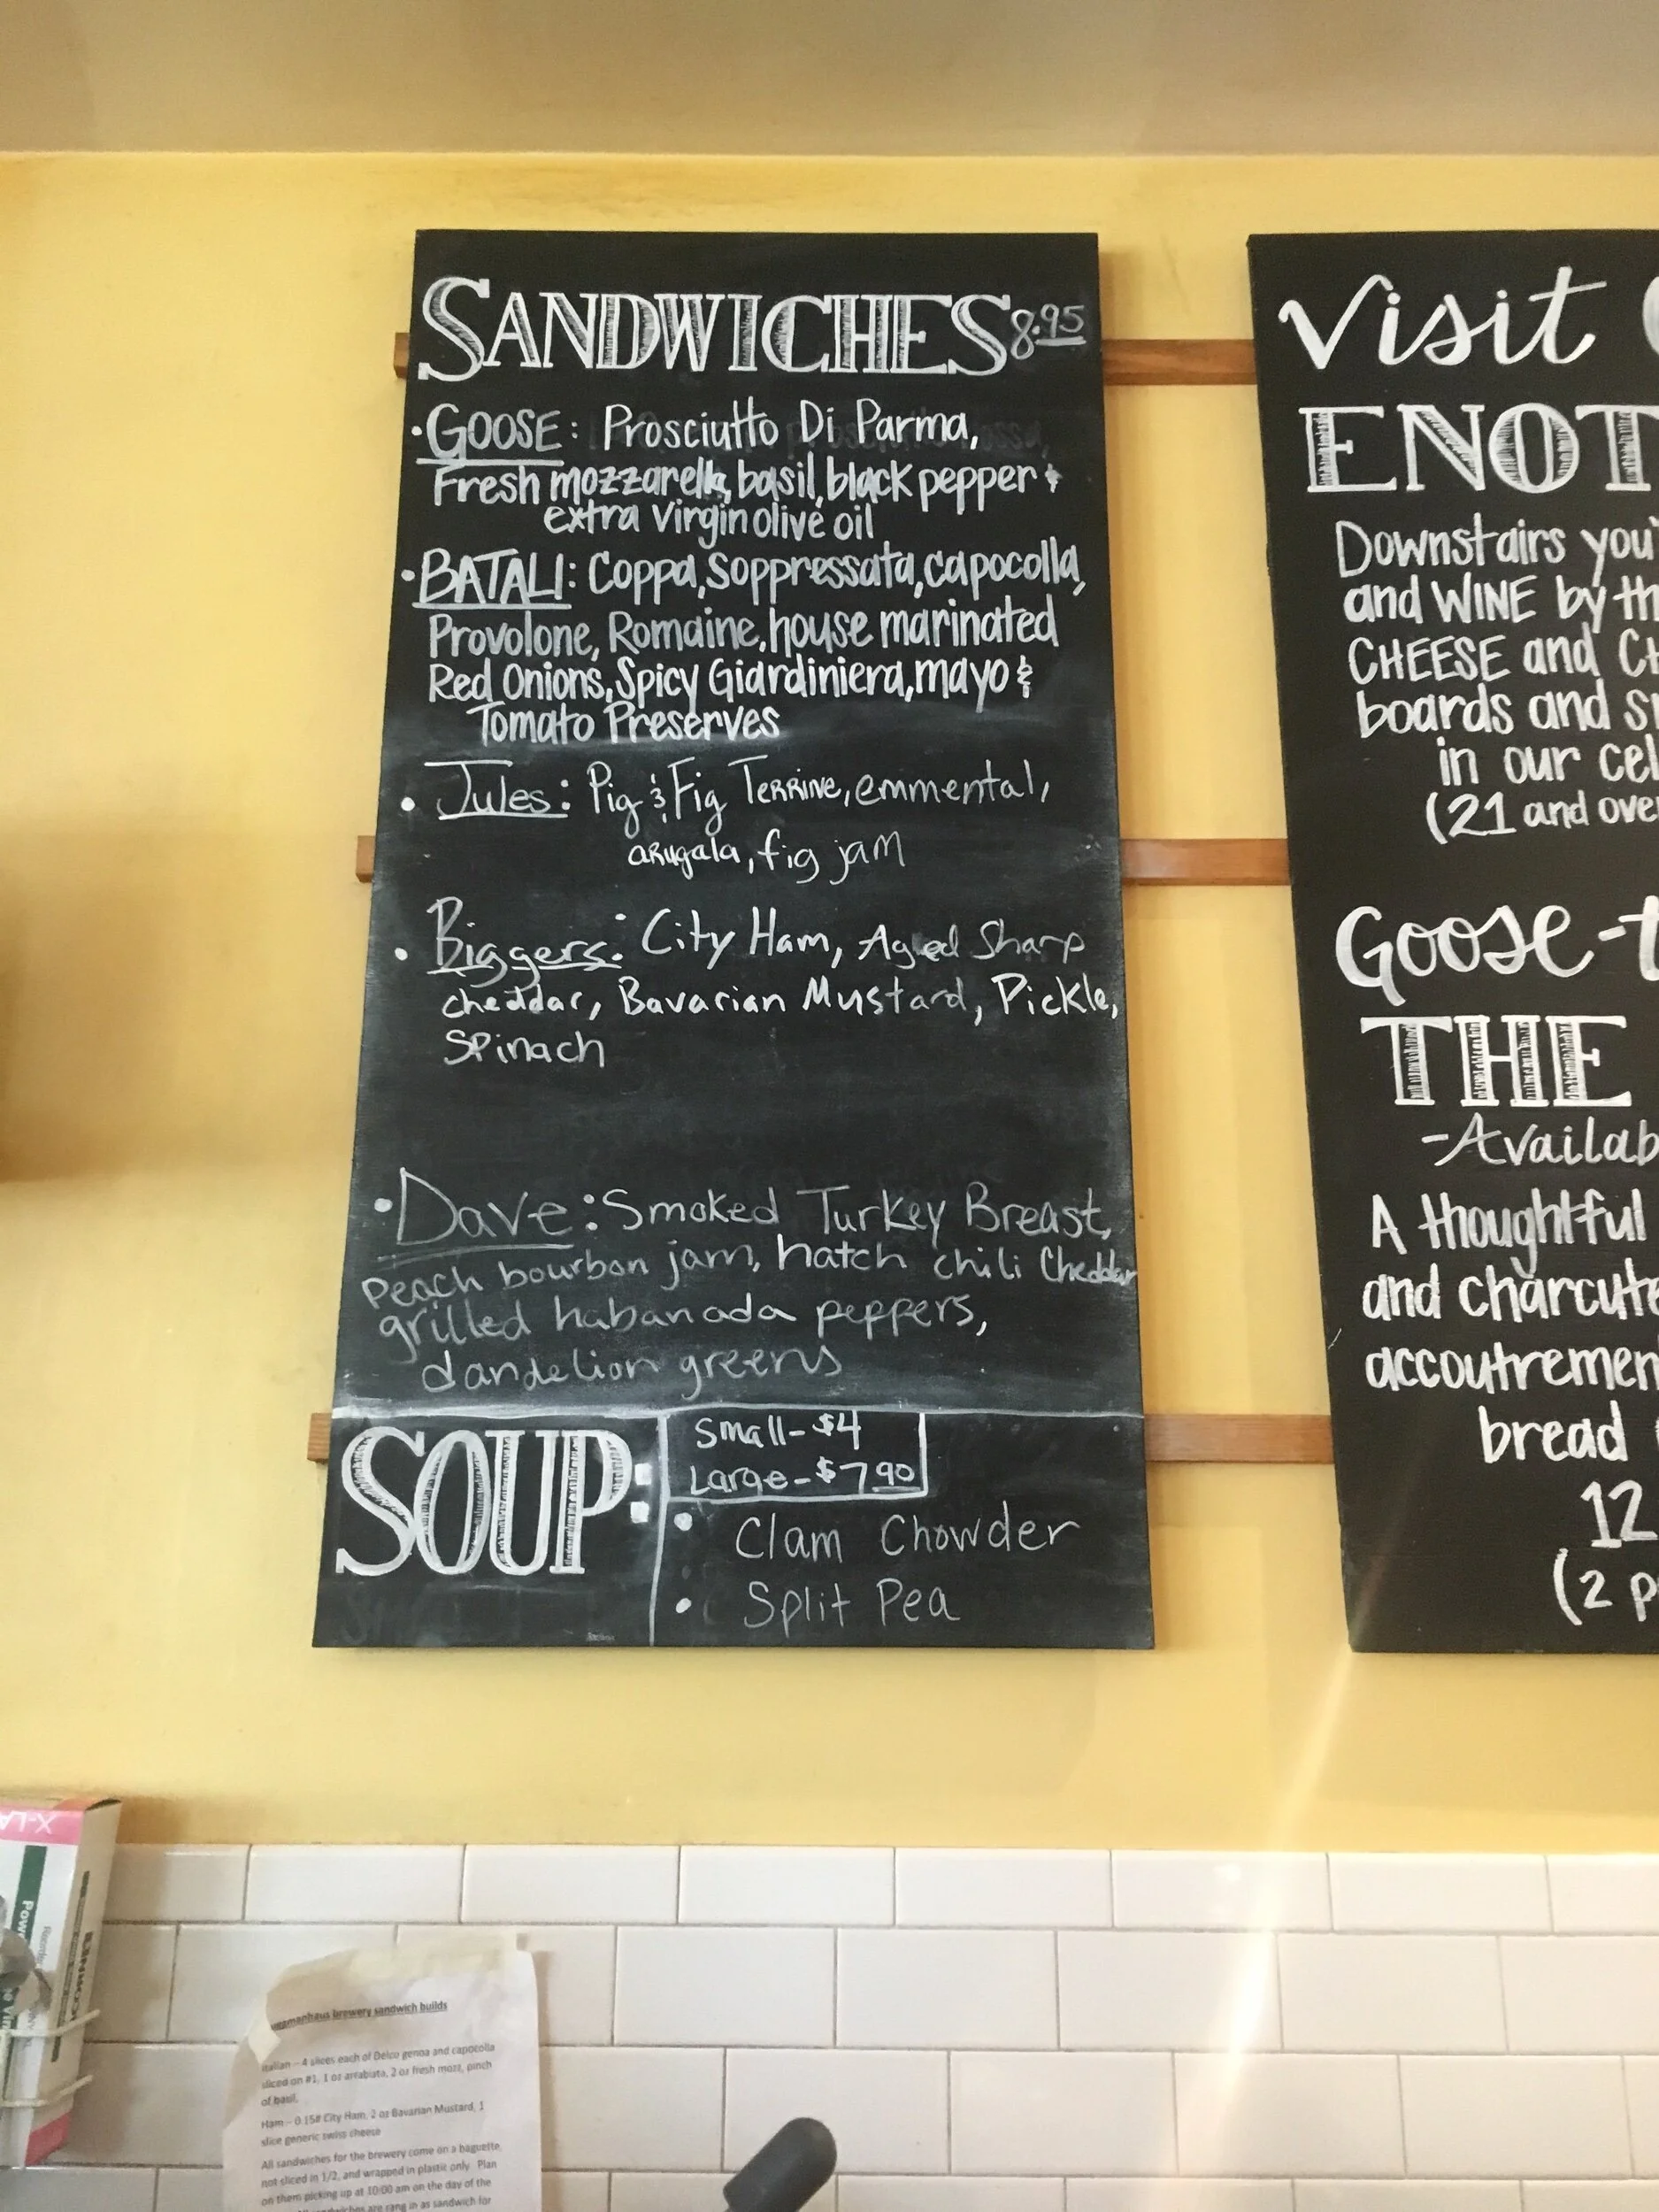 SANDWICHES 8.95
• GOOSE: Prosciutto Di Parma,
Fresh mozzarella, basil, black pepper &
extra virgin olive oil
• BATALI: Coppa, Soppressata, capocolla,
Provolone, Romaine, house marinated
Red Onions, Spicy Giardiniera, mayo &
Tomato Preserves
• Jules: Pig & Fig Terrine, emmental,
arugala, fig jam
• Biggers: City Ham, Aged Sharp
cheddar, Bavarian Mustard, Pickle,
Spinach
• Dave: Smoked Turkey Breast,
peach bourbon jam, hatch chili Cheddar
grilled habanada peppers,
dandelion greens
SOUP:
Small - $4
Large - $7.90
• Clam Chowder
• Split Pea
Visit
ENOT
Downstairs you'
and WINE by th
CHEESE and CH
boards and s
in our cel
(21 and over
Goose-t
THE
-Availab
A thoughtful
and charcute
accoutremen
bread
12
(2 p
X-LA
brewery sandwich builds
Italian – 4 slices each of Delco genoa and capocolla
sliced on #1, 1 oz arrabiata, 2 oz fresh mozz, pinch
of basil.
Ham – 0.15# City Ham, 2 oz Bavarian Mustard, 1
slice generic swiss cheese
All sandwiches for the brewery come on a baguette,
not sliced in 1/2, and wrapped in plastic only. Plan
on them picking up at 10:00 am on the day of the
are rang in as sandwich for